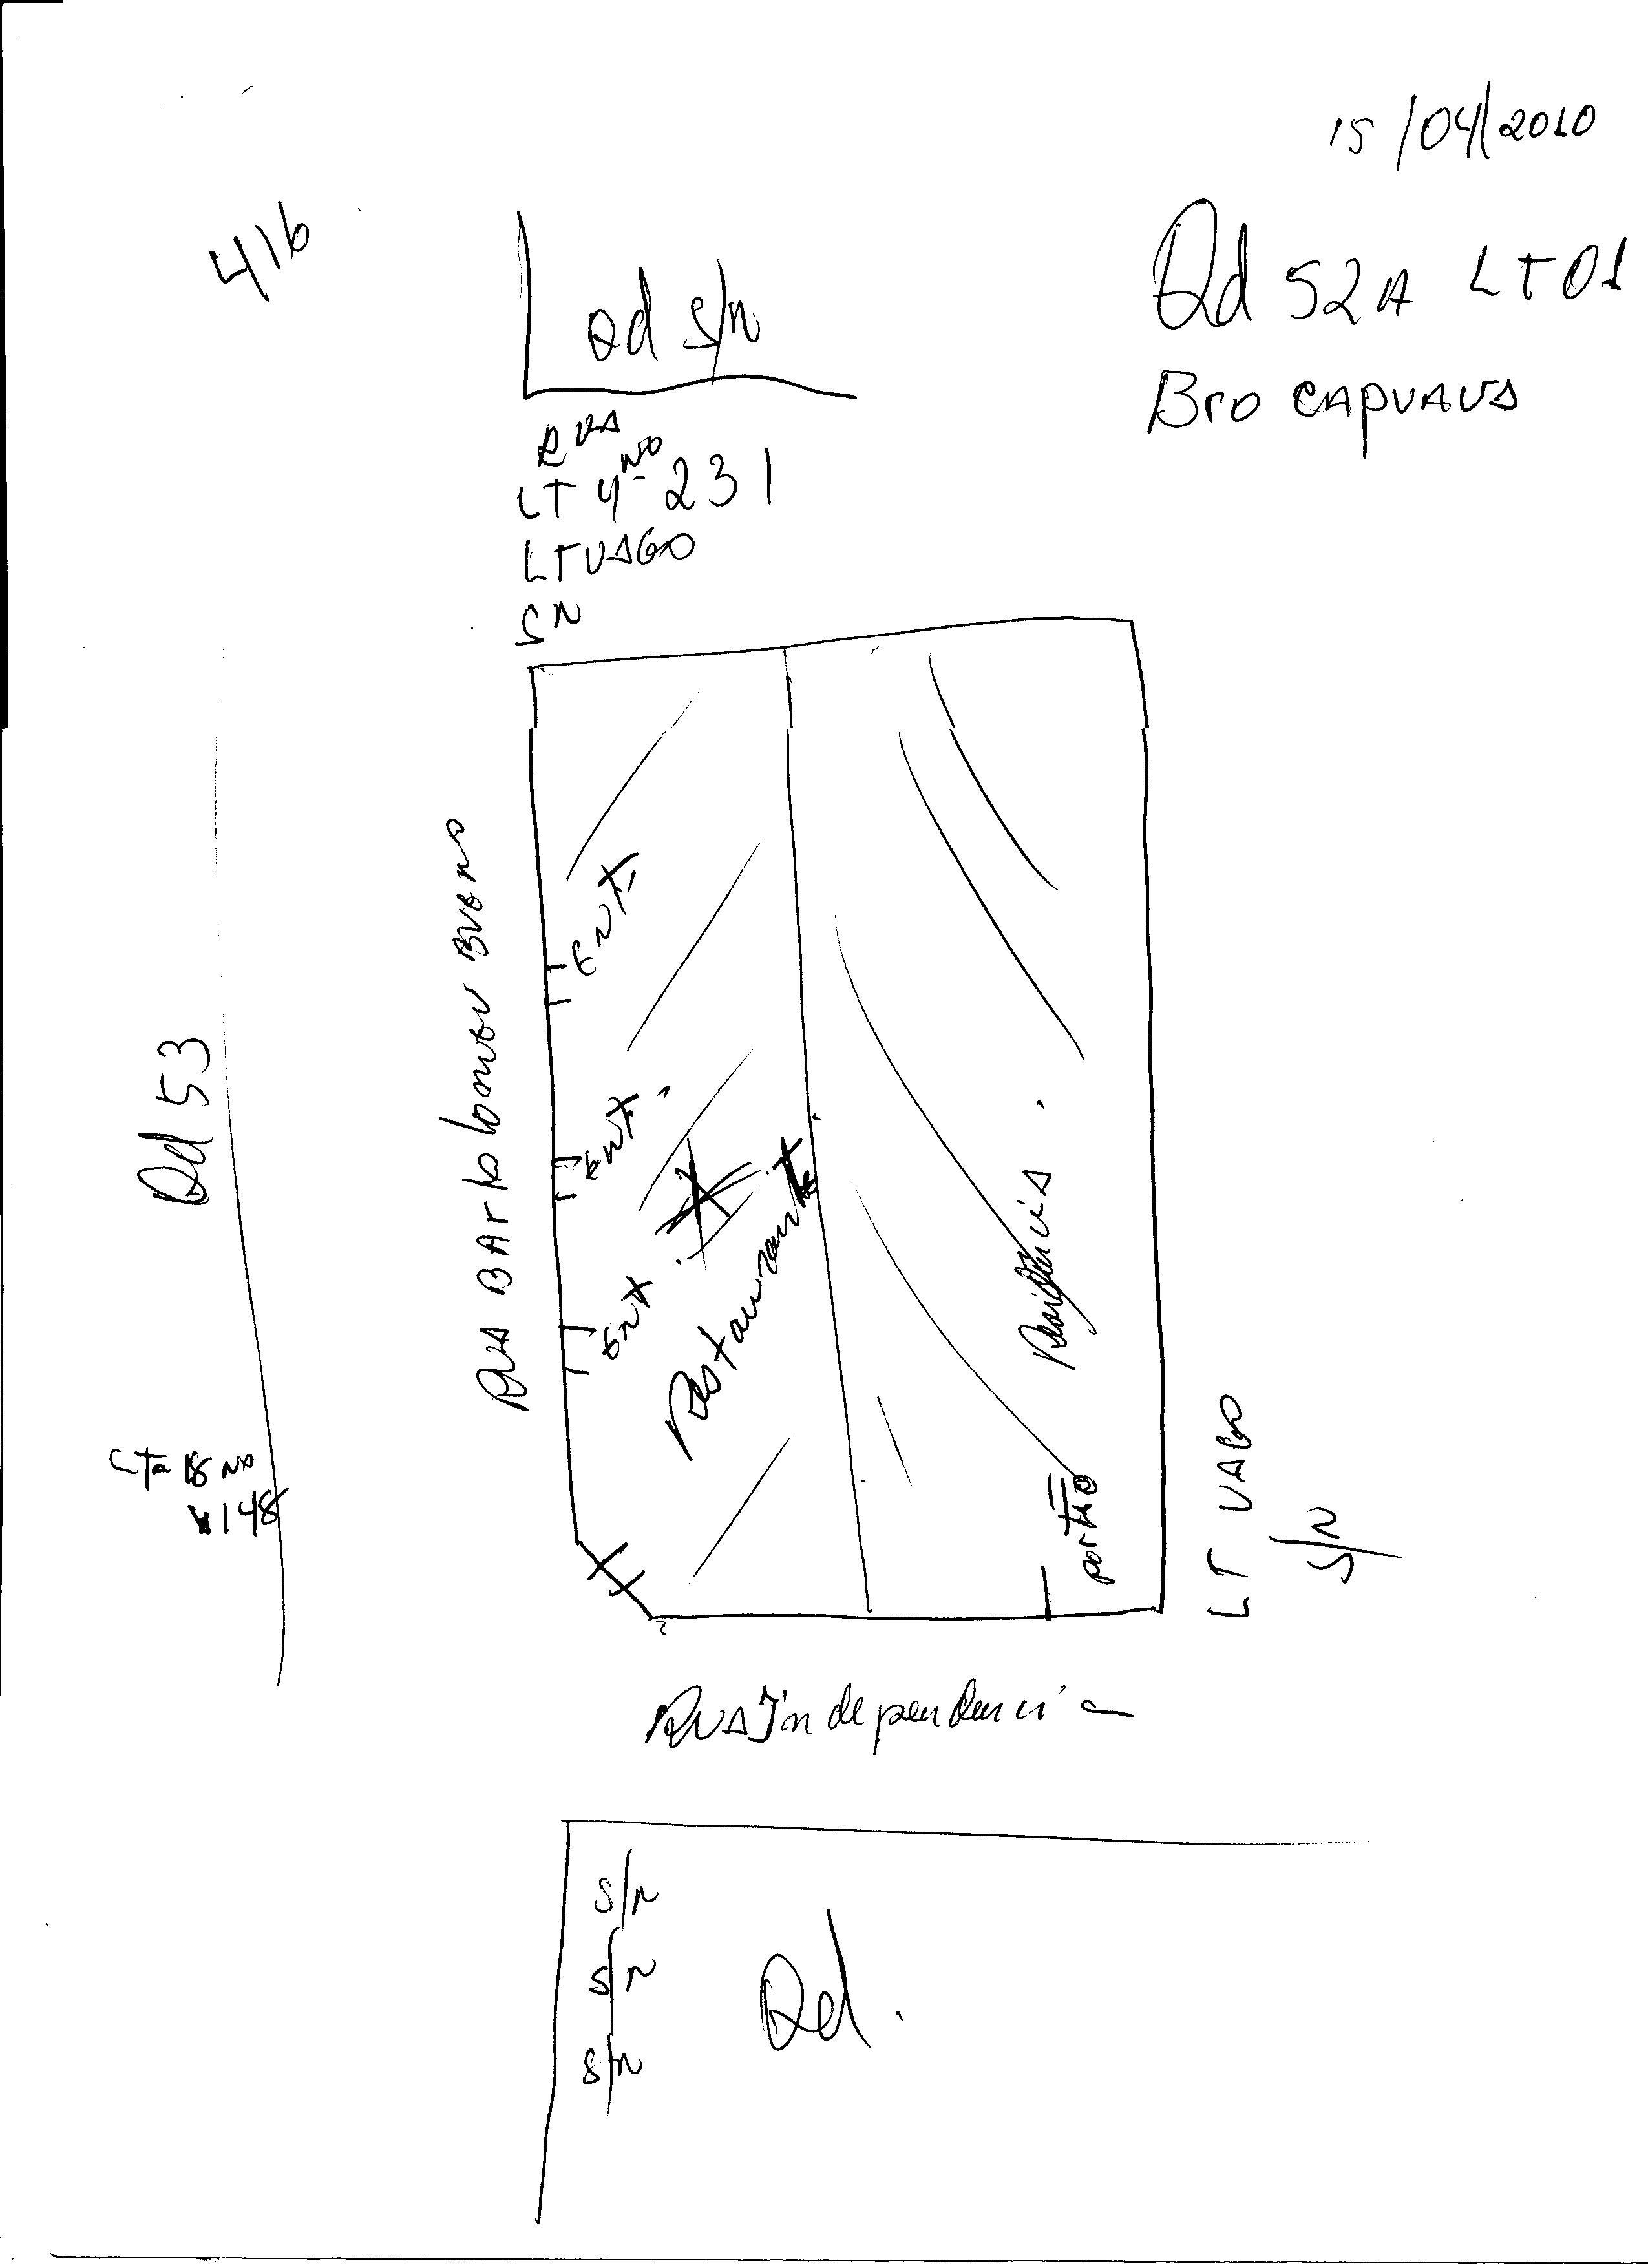 15/04/2010
416
Qd 52A LT01
Bro CAPUAVA
Qd s/n
RUA
LT 4 no 231
LT VAGO
SN
RUA BArtolomeu BUeno
Ent
Ent
Ent
Restaurante
Residencia
portão
Qd 53
no
148
LT VAGO
S/N
RUA Independencia
S/n
S/n
S/n
Qd.